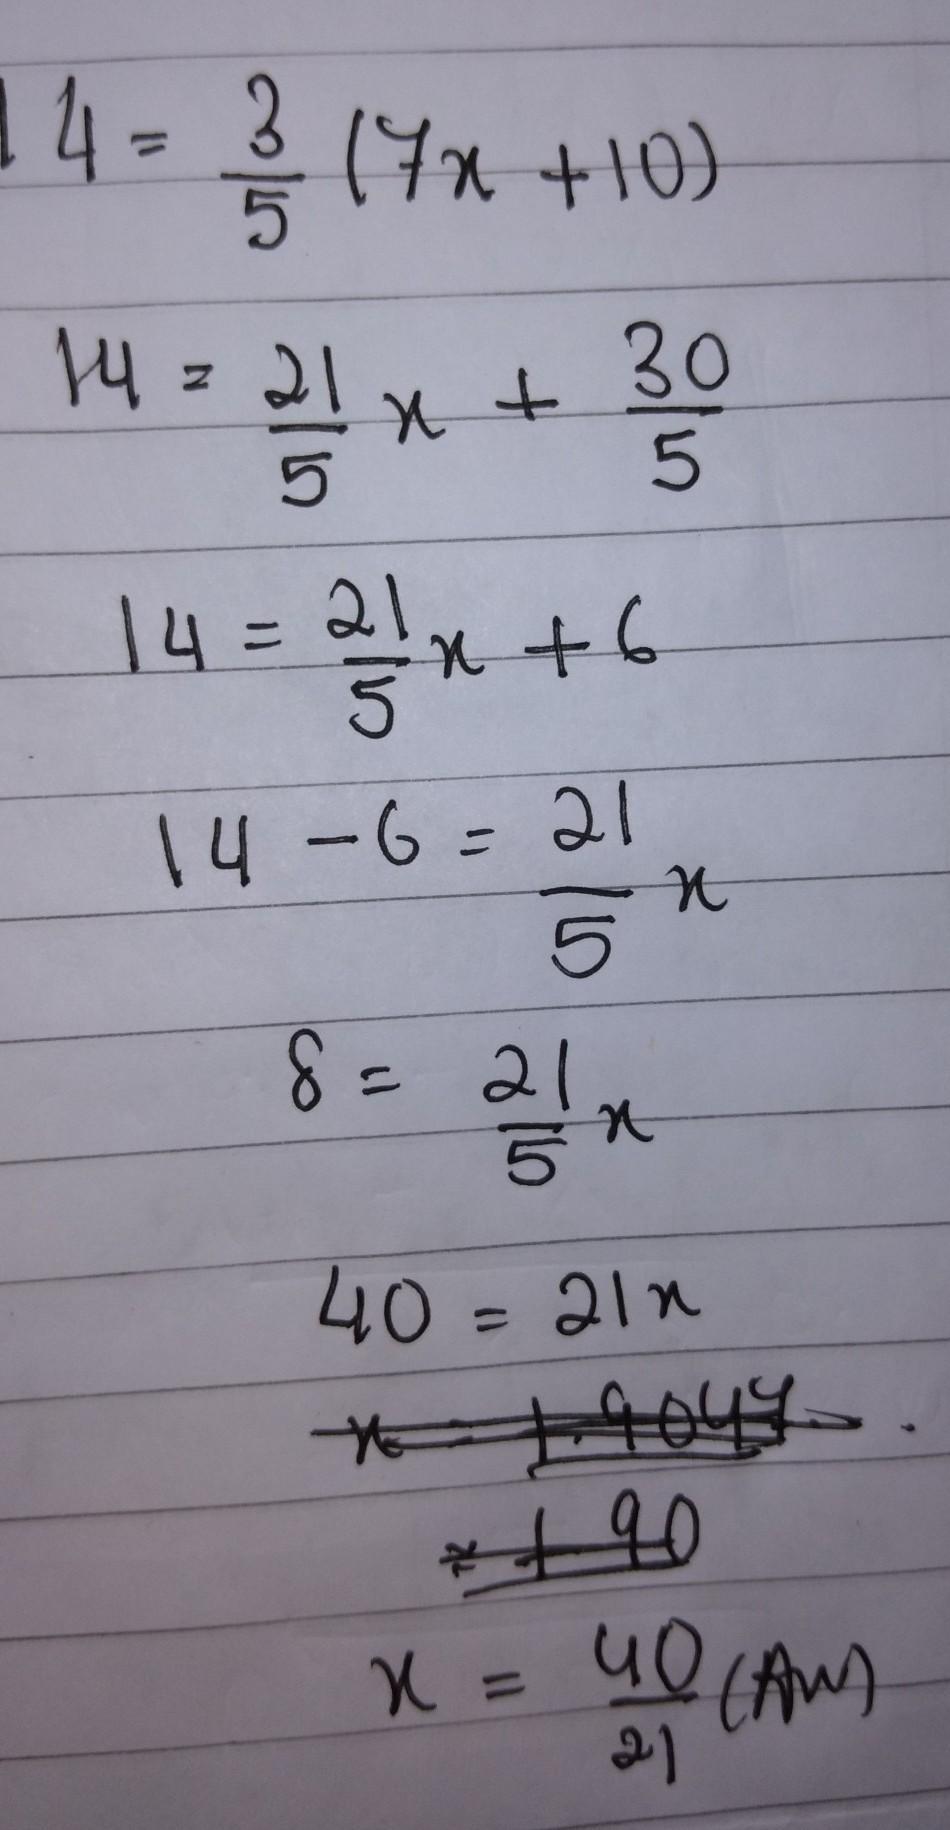 14 = 3/5 (7x + 10)
14 = 21/5 x + 30/5
14 = 21/5 x + 6
14 - 6 = 21/5 x
8 = 21/5 x
40 = 21x
x = 1.9047
≈ 1.90
x = 40/21 (Ans)